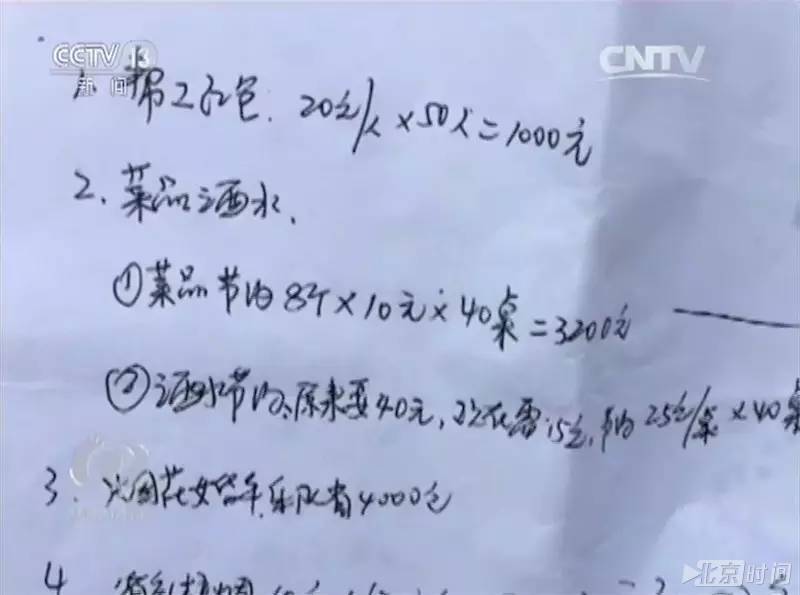 CCTV 13
新闻
CNTV
1、帮工红包：20元/人×50人=1000元
2、菜品酒水、
①菜品节约8个×10元×40桌=3200元
②酒水节约、原来要40元，现在需15元，节约25元/桌×40桌
3、火图花女皆车、乐队省4000元
4
北京时间